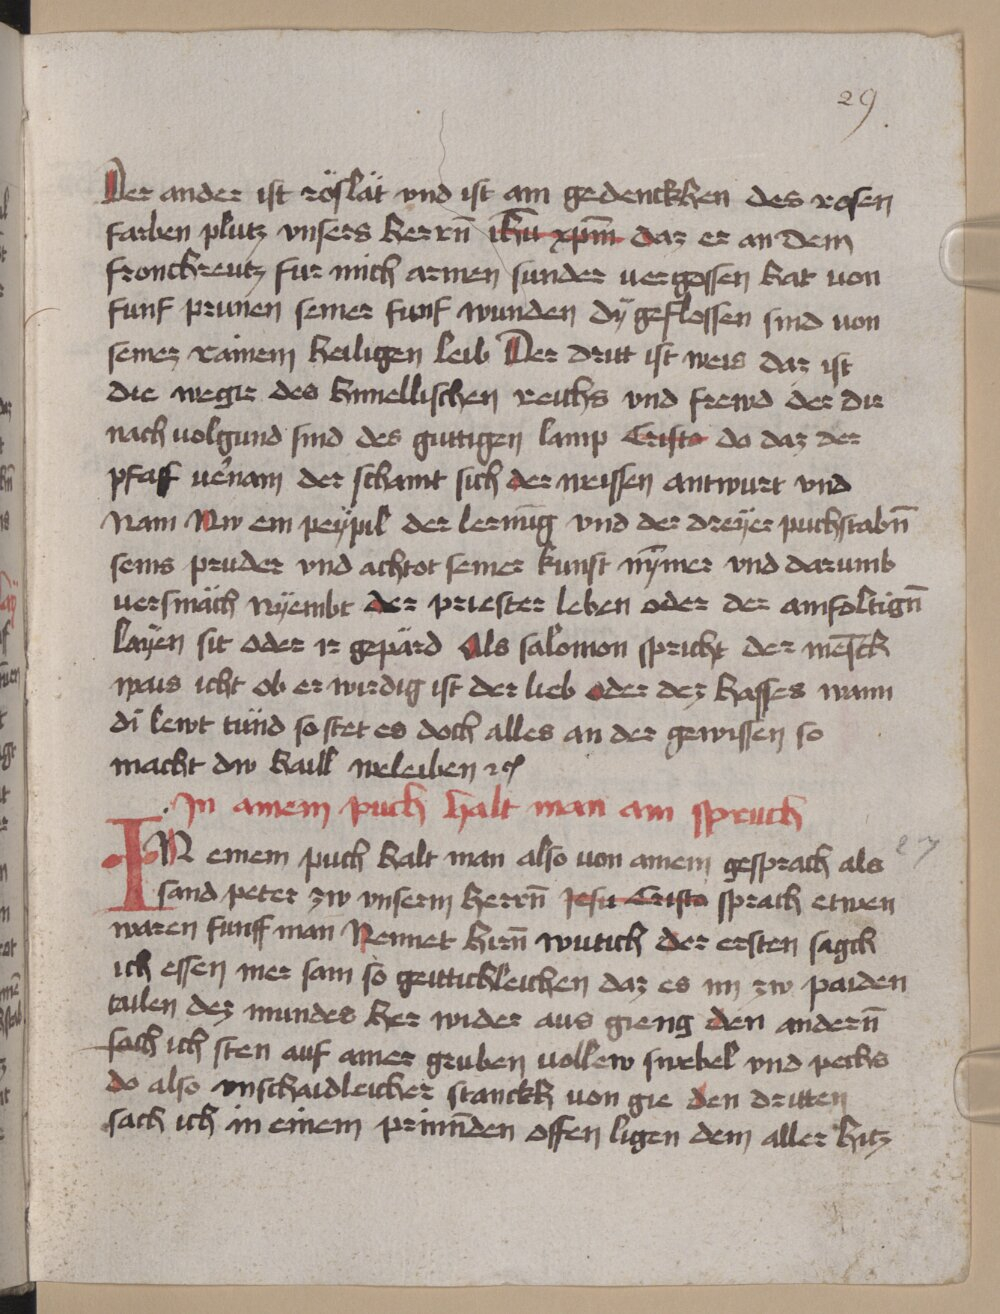 29
Der ander ist röslät vnd ist am gedenckhen des rosen
farben plutz vnsers herrn̄ ih̄u xp̄m̄ daz er an dem
fronchreutz fur mich armen sunder vergossen hat von
funf prunen seiner funf wunden dÿ geflossen sind von
seinez rainem heiligen leib Der dritt ist weis daz ist
die wegir des himellischen reichs vnd frewd der die
nach volgund sind des guttigen lamp Cristo do daz der
pfaff v'nam der schamt sich der weissen antwurt vnd
Nam Nw ein peÿpil der lernūg vnd der dreÿer puchstabn̄
seins pruder vnd achtot seiner kunst nȳmer vnd darumb
versmäch Nÿembt der priester leben oder der ainfoltign̄
laÿen sit oder ir gepärd Als salomon spricht der mēsch
wais icht ob er wirdig ist der lieb oder dez hasses wann
di lewt tünd so stet es doch alles an der gewissen so
macht dw haill weleiben ꝛc
In ainem puch halt man ain spruch
27
IN einem puch halt man also von ainem gesprach als
sand peter zw vnserm herrn̄ Jesu Cristo sprach etwen
waren funff man Nennet hirn̄ wutich der ersten sagch
ich essen mer sam so geittichleichen daz es im zw paiden
tailen dez mundes her wider aus gieng den andern̄
sach ich sten auf ainer gruben vollew swebel vnd pechs
do also vnschaidleicher stanckh von gie den dritten
sach ich in einem prinn̄den offen ligen dem aller hitz